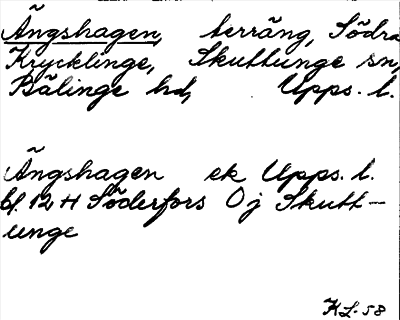 Ängshagen, terräng, Södra
Krycklinge, Skuttunge sn,
Bälinge hd, Upps. l.
Ängshagen ek Upps. l.
bl. 12 H Söderfors Oj Skutt-
unge
KL-58